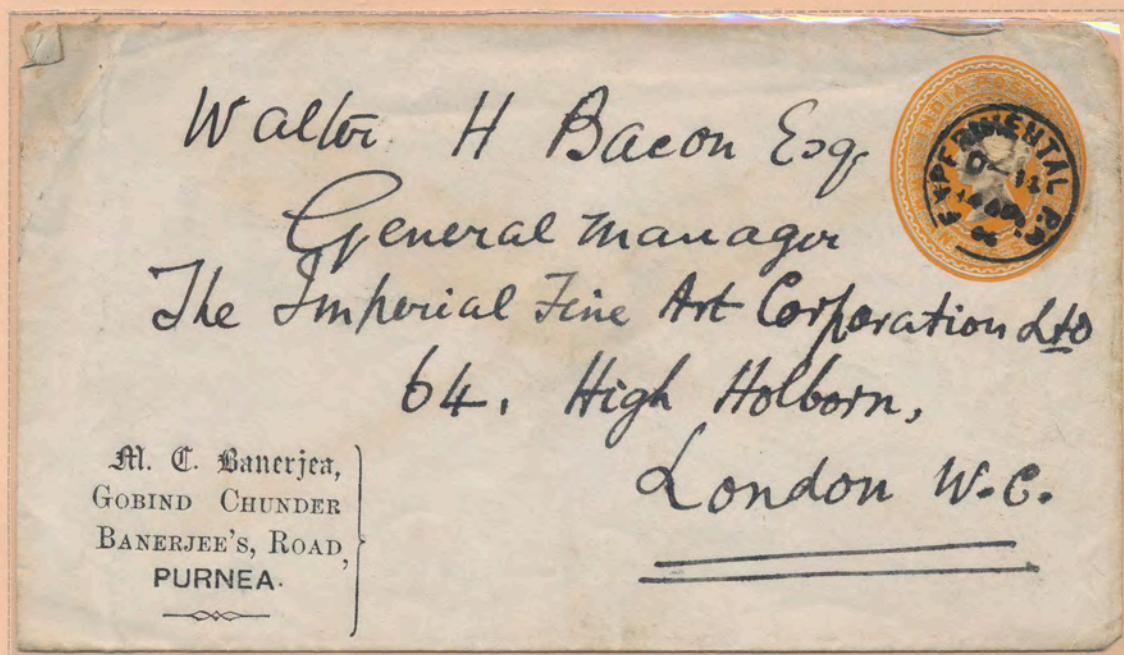 Walter H Bacon Esq
General Manager
The Imperial Fine Art Corporation Ltd
64, High Holborn,
London W.C.
INDIA POSTAGE
EXPERIMENTAL P.O.
M. C. Banerjea,
GOBIND CHUNDER
BANERJEE'S, ROAD,
PURNEA.